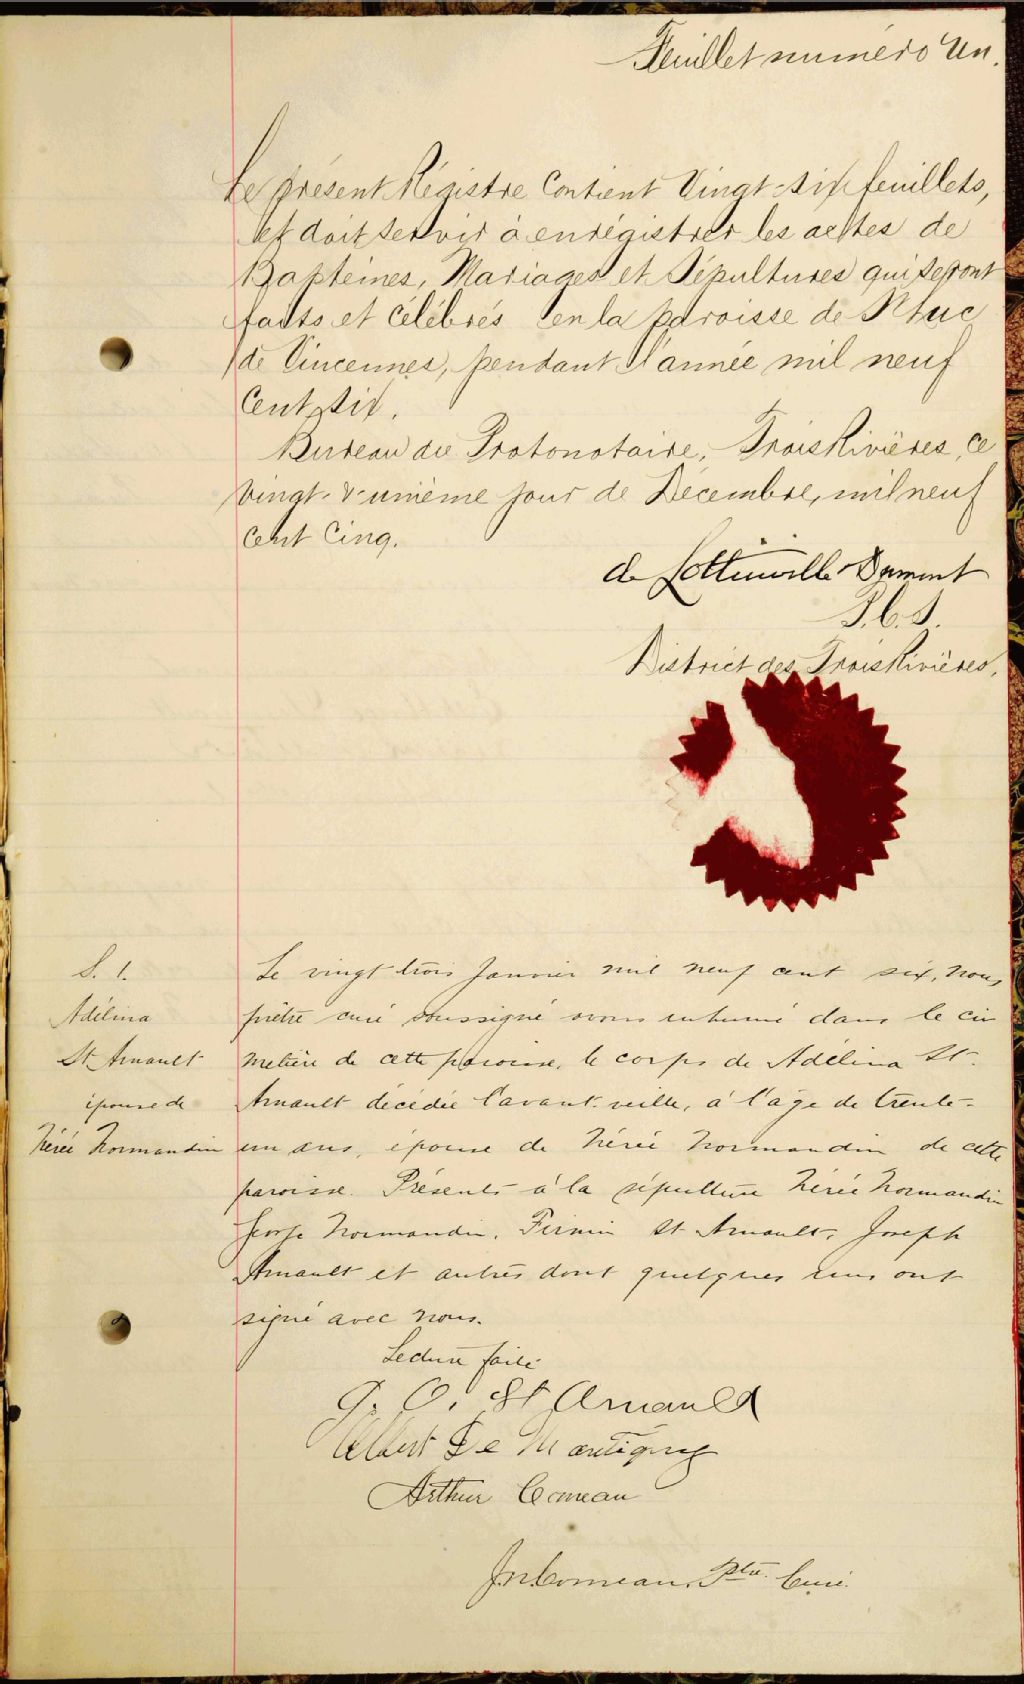 Feuillet numéro Un.
Le présent Régistre Contient Vingt-six feuillets,
et doit servir à enrégistrer les actes de
Baptêmes, Mariages et Sépultures qui seront
faits et célébrés en la paroisse de St Luc
de Vincennes, pendant l'année mil neuf
Cent Six.
Bureau du Protonotaire, Trois Rivières, ce
vingt-&-unième jour de Décembre, mil neuf
cent Cinq.
de Lottinville Dumont
P.C.S.
District des Trois Rivières,
S. 1.
Adélina
St Arnault
épouse de
Nérée Normandin
Le vingt trois Janvier mil neuf cent six, nous
prêtre curé soussigné avons inhumé dans le ci
metière de cette paroisse, le corps de Adélina St-
Arnault décédée l'avant-veille, à l'âge de trente-
un ans, épouse de Nérée Normandin de cette
paroisse. Présents à la sépulture Nérée Normandin
George Normandin, Firmin St Arnault, Joseph
Arnault et autres dont quelques uns ont
signé avec nous.
Lecture faite
J. O. St Arnauld
Albert De Montigny
Arthur Comeau
J. N. Comeau, Ptre. Curé.